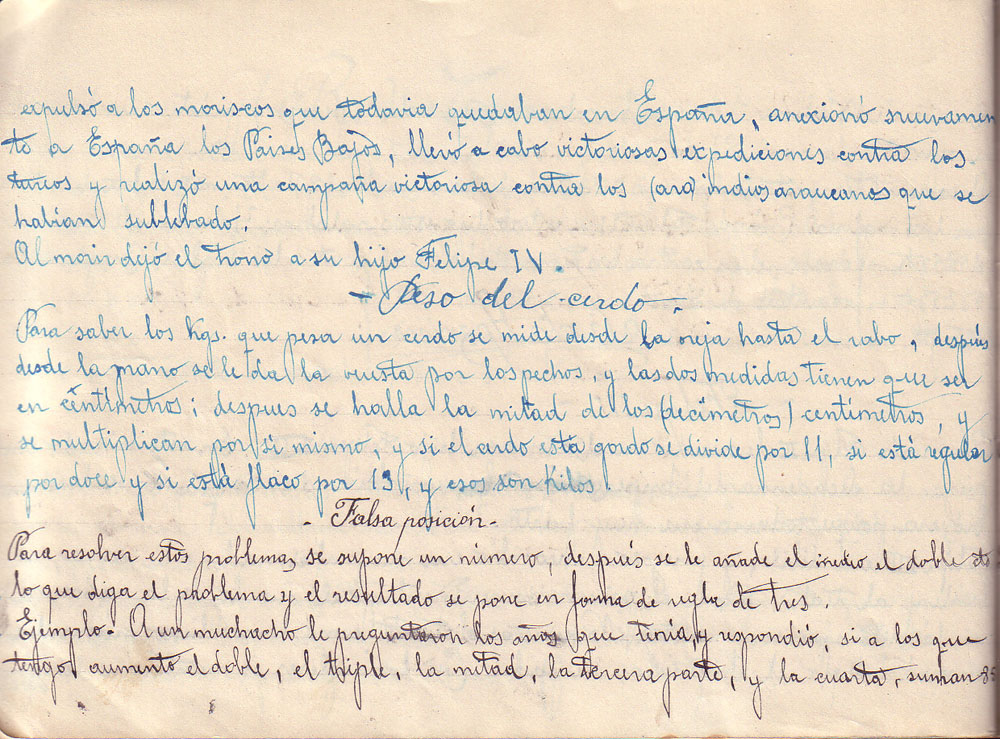 expulsó a los moriscos que todavia quedaban en España, anexionó nuevamen
te a España los Paises Bajos, llevó a cabo victoriosas expediciones contra los
turcos y realizó una campaña victoriosa contra los (ara) indios araucanos que se
habían sublebado.
Al morir dejó el trono a su hijo Felipe IV.
- Peso del cerdo -
Para saber los Kgs. que pesa un cerdo se mide desde la oreja hasta el rabo, después
desde la mano se le da la vuelta por los pechos, y las dos medidas tienen que ser
en centímetros; despues se halla la mitad de los (decímetros) centímetros, y
se multiplican por sí mismo, y si el cerdo está gordo se divide por 11, si está regular
por doce y si está flaco por 13, y esos son kilos.
- Falsa posición -
Para resolver estos problemas se supone un número, después se le añade el medio el doble etc
lo que diga el problema y el resultado se pone en forma de regla de tres.
Ejemplo - A un muchacho le preguntaron los años que tenía, y respondió, si a los que
tengo, aumento el doble, el triple, la mitad, la tercera parte, y la cuarta, suman